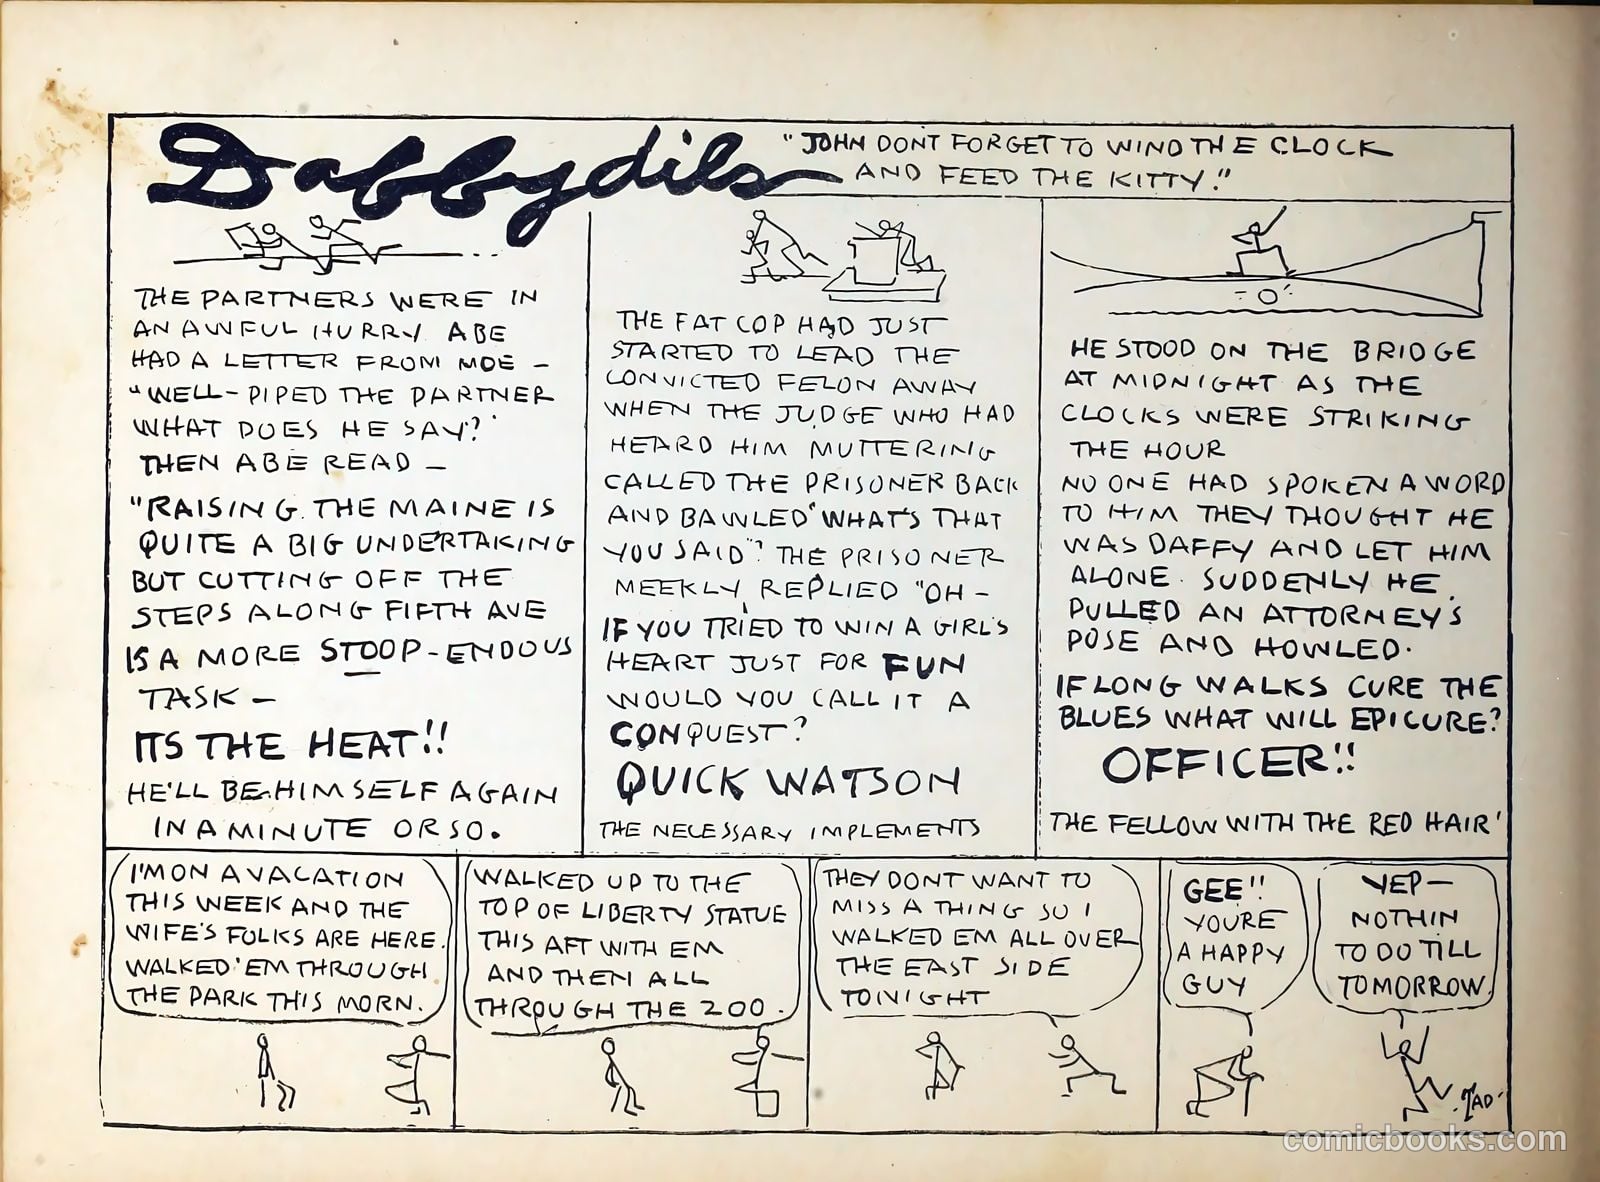 Daffydils
"JOHN DONT FORGET TO WIND THE CLOCK
AND FEED THE KITTY."
THE PARTNERS WERE IN
AN AWFUL HURRY ABE
HAD A LETTER FROM MOE —
"WELL - PIPED THE PARTNER
WHAT DOES HE SAY?"
THEN ABE READ —
"RAISING THE MAINE IS
QUITE A BIG UNDERTAKING
BUT CUTTING OFF THE
STEPS ALONG FIFTH AVE
IS A MORE STOOP-ENDOUS
TASK —
ITS THE HEAT!!
HE'LL BE HIMSELF AGAIN
IN A MINUTE OR SO.
THE FAT COP HAD JUST
STARTED TO LEAD THE
CONVICTED FELON AWAY
WHEN THE JUDGE WHO HAD
HEARD HIM MUTTERING
CALLED THE PRISONER BACK
AND BAWLED "WHAT'S THAT
YOU SAID"? THE PRISONER
MEEKLY REPLIED "OH —
IF YOU TRIED TO WIN A GIRL'S
HEART JUST FOR FUN
WOULD YOU CALL IT A
CONQUEST?
QUICK WATSON
THE NECESSARY IMPLEMENTS
HE STOOD ON THE BRIDGE
AT MIDNIGHT AS THE
CLOCKS WERE STRIKING
THE HOUR
NO ONE HAD SPOKEN A WORD
TO HIM THEY THOUGHT HE
WAS DAFFY AND LET HIM
ALONE. SUDDENLY HE
PULLED AN ATTORNEY'S
POSE AND HOWLED.
IF LONG WALKS CURE THE
BLUES WHAT WILL EPICURE?
OFFICER!!
THE FELLOW WITH THE RED HAIR'
I'M ON A VACATION
THIS WEEK AND THE
WIFE'S FOLKS ARE HERE.
WALKED 'EM THROUGH
THE PARK THIS MORN.
WALKED UP TO THE
TOP OF LIBERTY STATUE
THIS AFT WITH EM
AND THEN ALL
THROUGH THE ZOO.
THEY DONT WANT TO
MISS A THING SO I
WALKED EM ALL OVER
THE EAST SIDE
TONIGHT
GEE!!
YOURE
A HAPPY
GUY
YEP —
NOTHIN
TO DO TILL
TOMORROW.
TAD
comicbooks.com